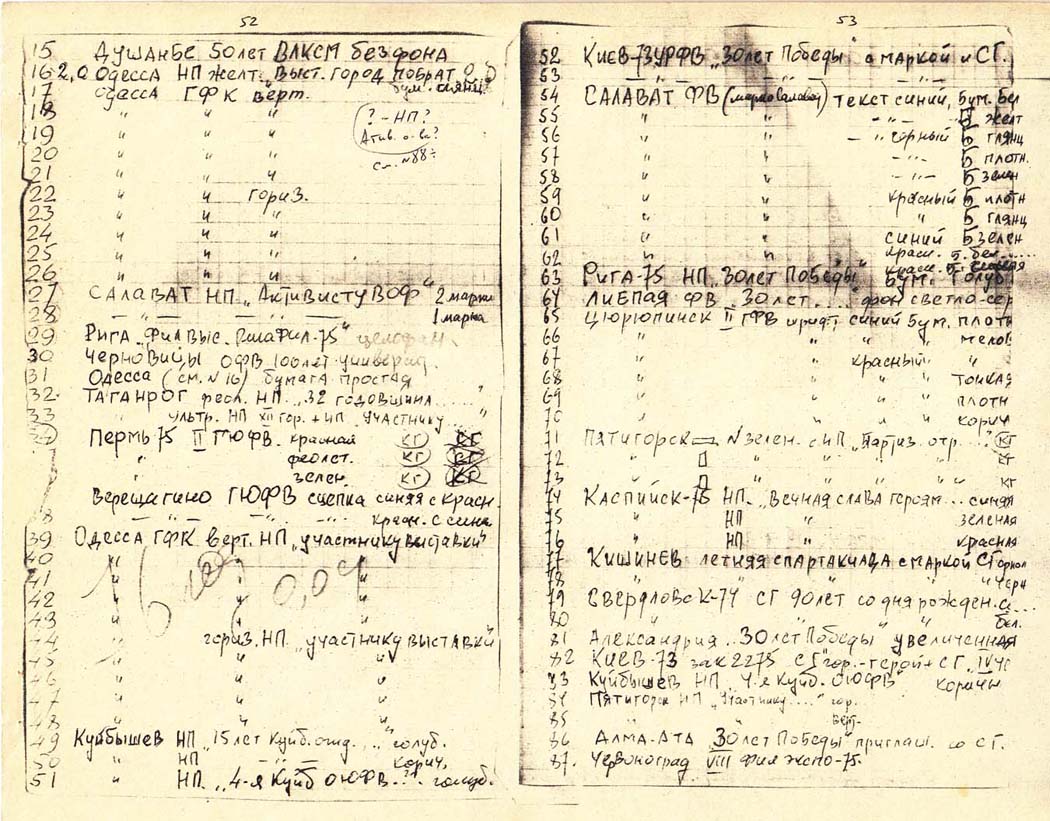 52
15 Душанбе 50 лет ВЛКСМ без фона
16 2,0 Одесса НП желт. Выст. город побрат
17 Одесса ГФК верт. бум. глянц
18 " " " ? - НП?
19 " " " Актив. о-ва?
20 " " " см. №88÷
21 " " "
22 " " гориз.
23 " " "
24 " " "
25 " " "
26 " " "
27 Салават НП „Активисту ВОФ" 2 марки
28 — " — 1 марка
29 Рига „Фил выс. Ригафил-75" целофан.
30 Черновицы ОФВ 100 лет универид.
31 Одесса (см. № 16) бумага простая
32 Таганрог респ. НП „32 годовщина ...... "
33 " НП XII гор. + ИП участнику ... "
34 Пермь 75 II ГЮФВ. красная КГ СГ
" феолет. КГ СГ
" зелен. КГ СГ
Верещагино ГЮФВ сцепка синяя с красн
38 — " — — " — — " — красн. с сине
39 Одесса ГФК верт. НП „участнику выставки"
40 " " "
41 " " "
42 " " "
43 " " "
44 гориз. НП „участнику выставки"
45 " " "
46 " " "
47 " " "
48 " " "
49 Куйбышев НП „15 лет Куйб. отд. ..." голуб.
50 " НП — " — корич.
51 " НП. „4-я Куйб ОЮФВ..." голуб.
16 0,04
53
52 Киев-73 УРФВ „30 лет Победы" с маркой и СГ.
53 — " —
54 Салават ФВ (мармеладовой) текст синий, Бум. Бел
55 " " — " — Б желт
56 " " — " — чёрный Б глянц
57 " " — " — Б плотн.
58 " " Б зелен
59 " " красный Б плотн
60 " " " Б глянц
61 " " синий Б зелен
62 " " красн. Б. бел.
63 Рига-75 НП „30 лет Победы" Бум. голуб
64 Лиепая ФВ „30 лет ...." фон светло-сер
65 Цюрюпинск II ГФВ синий Бум. плотн
66 " " " мелов
67 " красный "
68 " " " тонкая
69 " " " плотн
70 " " " корич
71 Пятигорск № зелен. с ИП „Партиз. отр... КГ
72 " " " " КГ
73 " " " " КГ
74 Каспийск-75 НП „Вечная слава героям... синяя
75 " НП " зеленая
76 " НП " красная
77 Кишинев летняя спартакиада с маркой СГ
78 " " " " черн
79 Свердловск-74 СГ 90 лет со дня рожден.
80 " " " " бел.
81 Александрия „30 лет Победы" увеличенная
82 Киев-73 зак 2275 с СГ „гор.-герой + СГ. IV
83 Куйбышев НП „4-я Куйб. ОЮФВ" коричн
84 Пятигорск НП „Участнику...." гор.
85 " " верт.
86 Алма-Ата „30 лет Победы" приглаш. со СГ.
87. Червоноград VIII фил экспо-75.